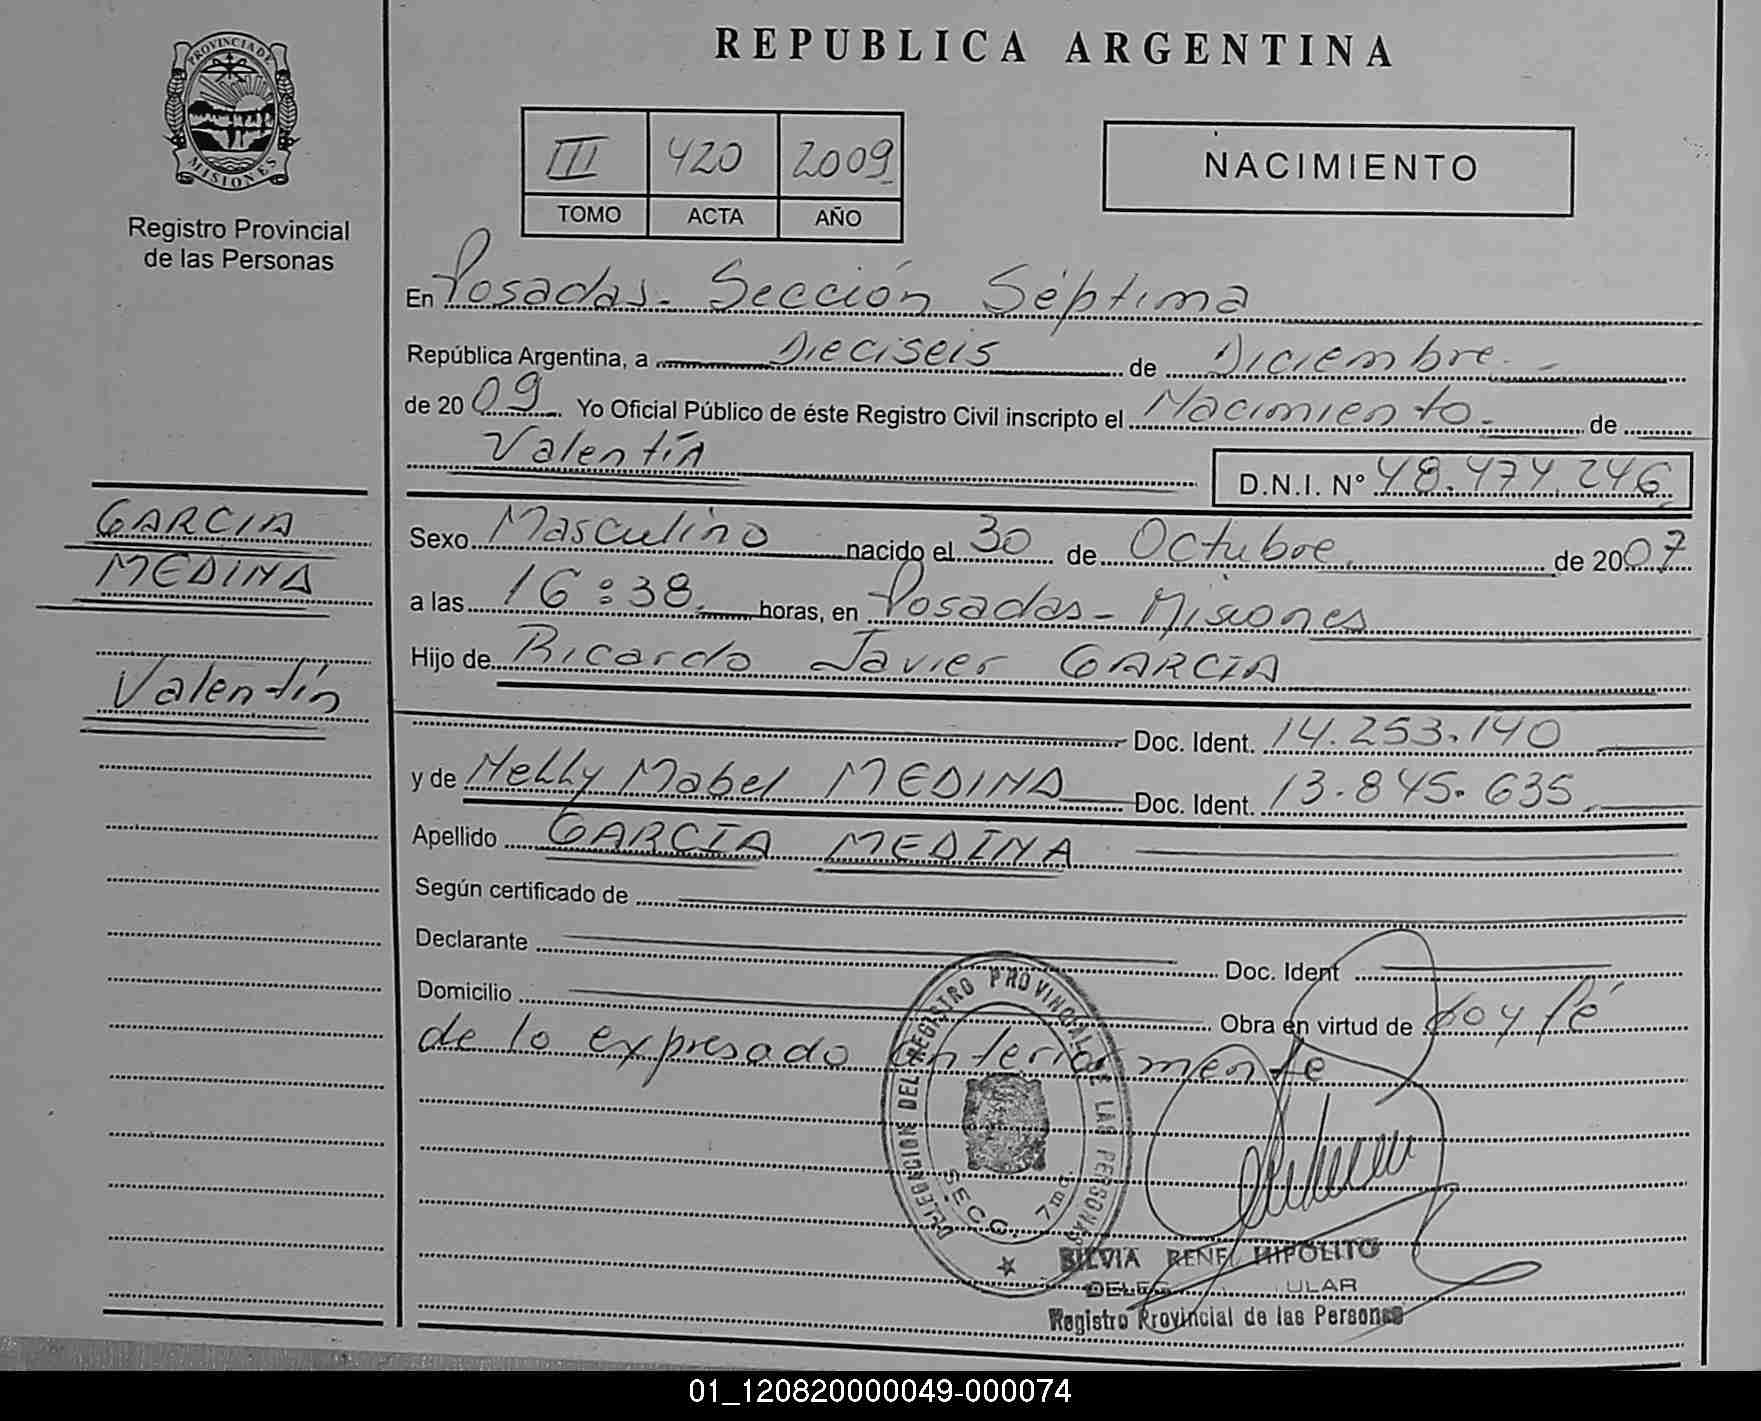 PROVINCIA DE
MISIONES
Registro Provincial
de las Personas
REPUBLICA ARGENTINA
III 420 2009
TOMO ACTA AÑO
NACIMIENTO
En Posadas - Sección Séptima
República Argentina, a Dieciseis de Diciembre
de 2009. Yo Oficial Público de éste Registro Civil inscripto el Nacimiento de
Valentín
D.N.I. N° 48.474.246
GARCIA
MEDINA
Valentín
Sexo Masculino nacido el 30 de Octubre de 2007
a las 16:38 horas, en Posadas - Misiones
Hijo de Ricardo Javier GARCIA
Doc. Ident. 14.253.140
y de Nelly Mabel MEDINA Doc. Ident. 13.845.635
Apellido GARCÍA MEDINA
Según certificado de
Declarante Doc. Ident
Domicilio Obra en virtud de doy fé
de lo expresado anteriormente
DELEGACION DEL REGISTRO PROVINCIAL DE LAS PERSONAS
SECC. 7ma.
SILVIA RENE HIPOLITO
Registro Provincial de las Personas
01_120820000049-000074